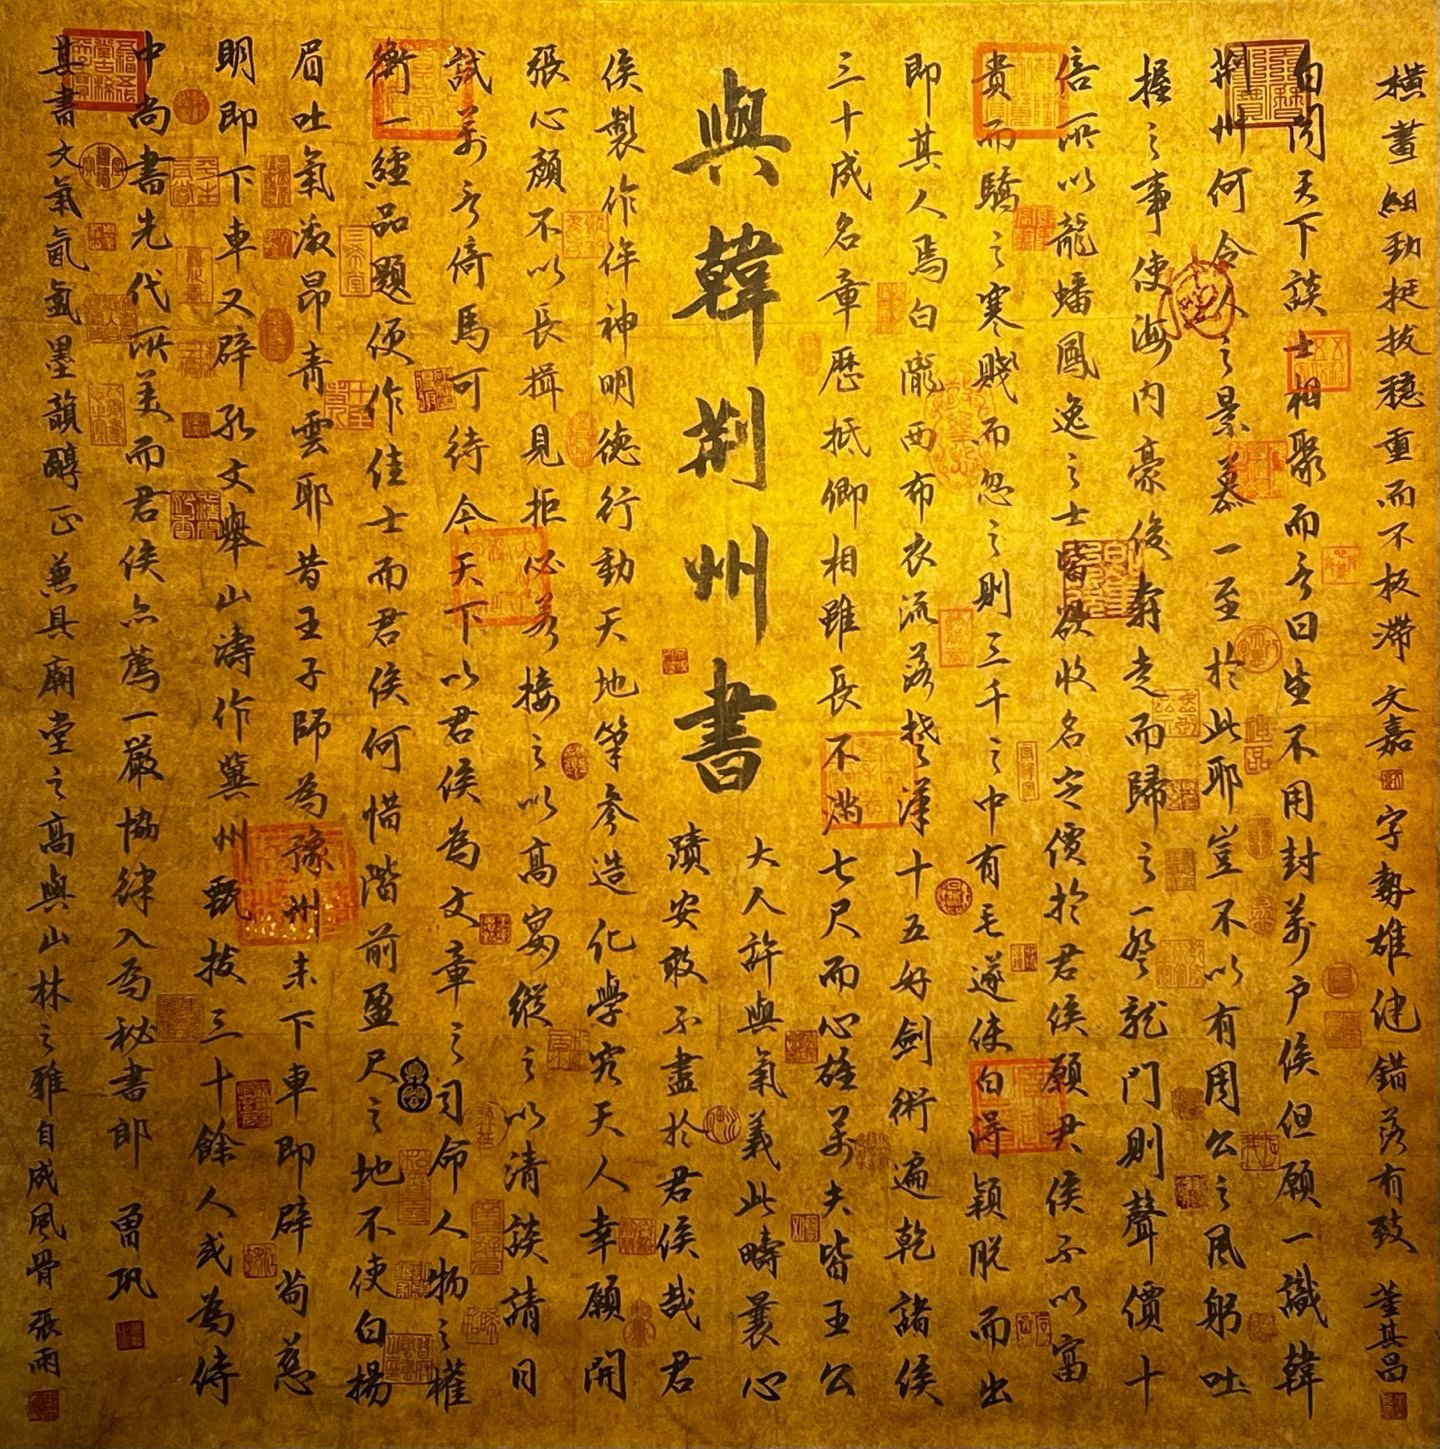 橫畫細勁挺拔穩重而不板滯 文嘉 字勢雄健錯落有致 董其昌
白聞天下談士相聚而言曰生不用封萬戶侯但願一識韓
荊州何令人之景慕一至於此耶豈不以有周公之風躬吐
握之事使海內豪俊奔走而歸之一登龍門則聲價十
倍所以龍蟠鳳逸之士皆欲收名定價於君侯願君侯不以富
貴而驕之寒賤而忽之則三千之中有毛遂使白得穎脫而出
即其人焉白隴西布衣流落楚漢十五好劍術遍乾諸侯
三十成名章歷抵卿相雖長不滿七尺而心雄萬夫皆王公
與韓荊州書
大人許與氣義此疇曩心
蹟安敢不盡於君侯哉君
侯製作侔神明德行動天地筆參造化學究天人幸願開
張心顏不以長揖見拒必若接之以高宴縱之以清談請日
試萬言倚馬可待今天下以君侯為文章之司命人物之權
衡一經品題便作佳士而君侯何惜階前盈尺之地不使白揚
眉吐氣激昂青雲耶昔王子師為豫州未下車即辟荀慈
明即下車又辟孔文舉山濤作冀州甄拔三十餘人或為侍
中尚書先代所美而君侯亦薦一嚴協律入為秘書郎 曾巩
其書文氣氤氳墨韻醇正兼具廟堂之高與山林之雅自成風骨 張雨